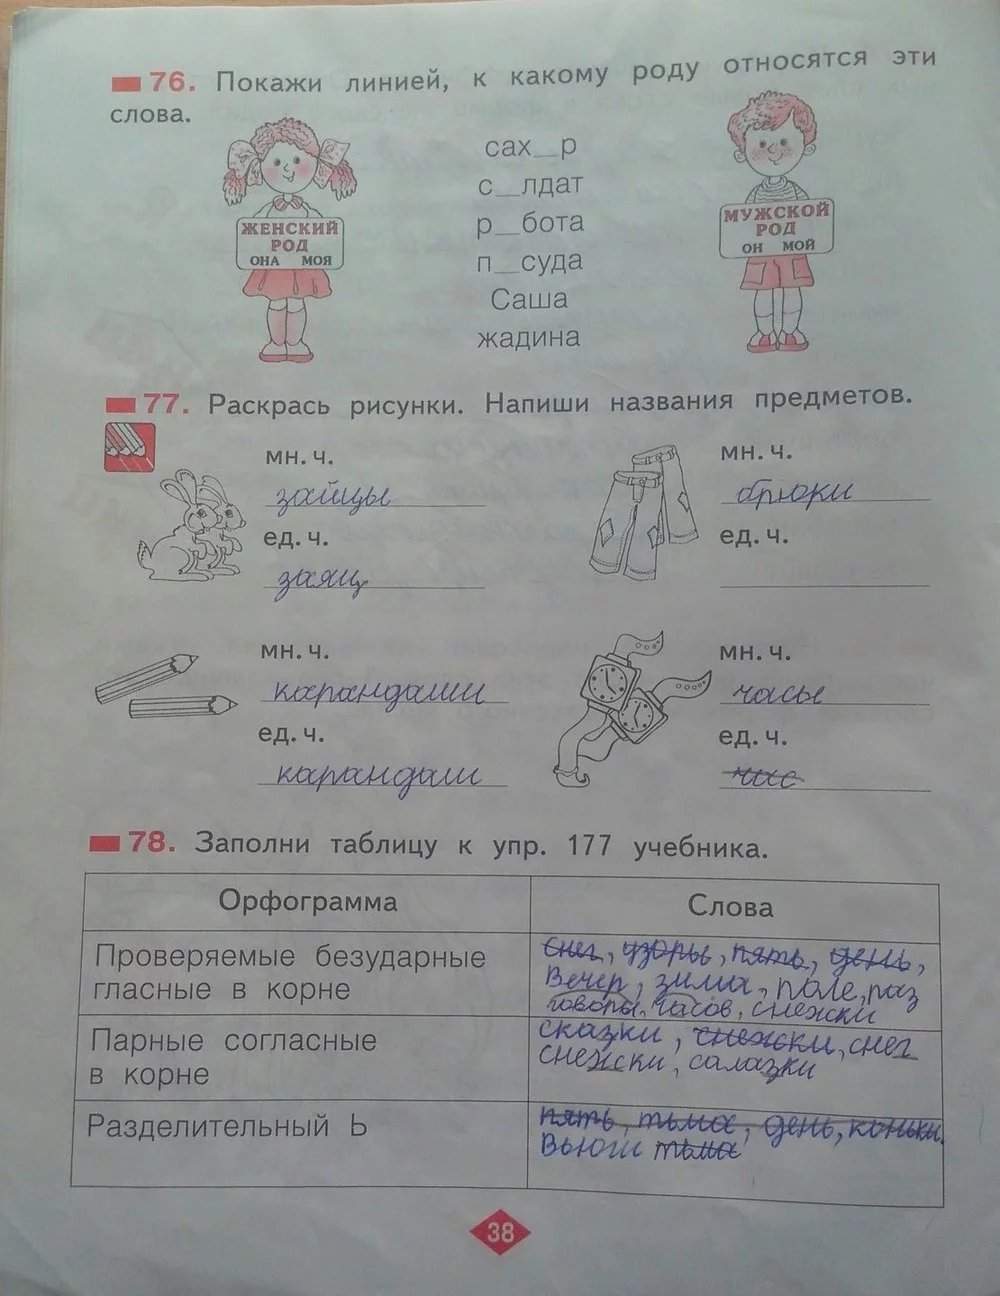 76. Покажи линией, к какому роду относятся эти
слова.
ЖЕНСКИЙ
РОД
ОНА МОЯ
сах_р
с_лдат
р_бота
п_суда
Саша
жадина
МУЖСКОЙ
РОД
ОН МОЙ
77. Раскрась рисунки. Напиши названия предметов.
мн. ч.
зайцы
ед. ч.
заяц
мн. ч.
брюки
ед. ч.
мн. ч.
карандаши
ед. ч.
карандаш
мн. ч.
часы
ед. ч.
час
78. Заполни таблицу к упр. 177 учебника.
Орфограмма
Слова
Проверяемые безударные
гласные в корне
снег, узоры, пять, день,
Вечер, зима, поле, раз
говоры, часов, снежки
Парные согласные
в корне
сказки, снежски, снег
снежски, салазки
Разделительный Ь
пять, тьма, день, коньки.
Вьюги тьма
38